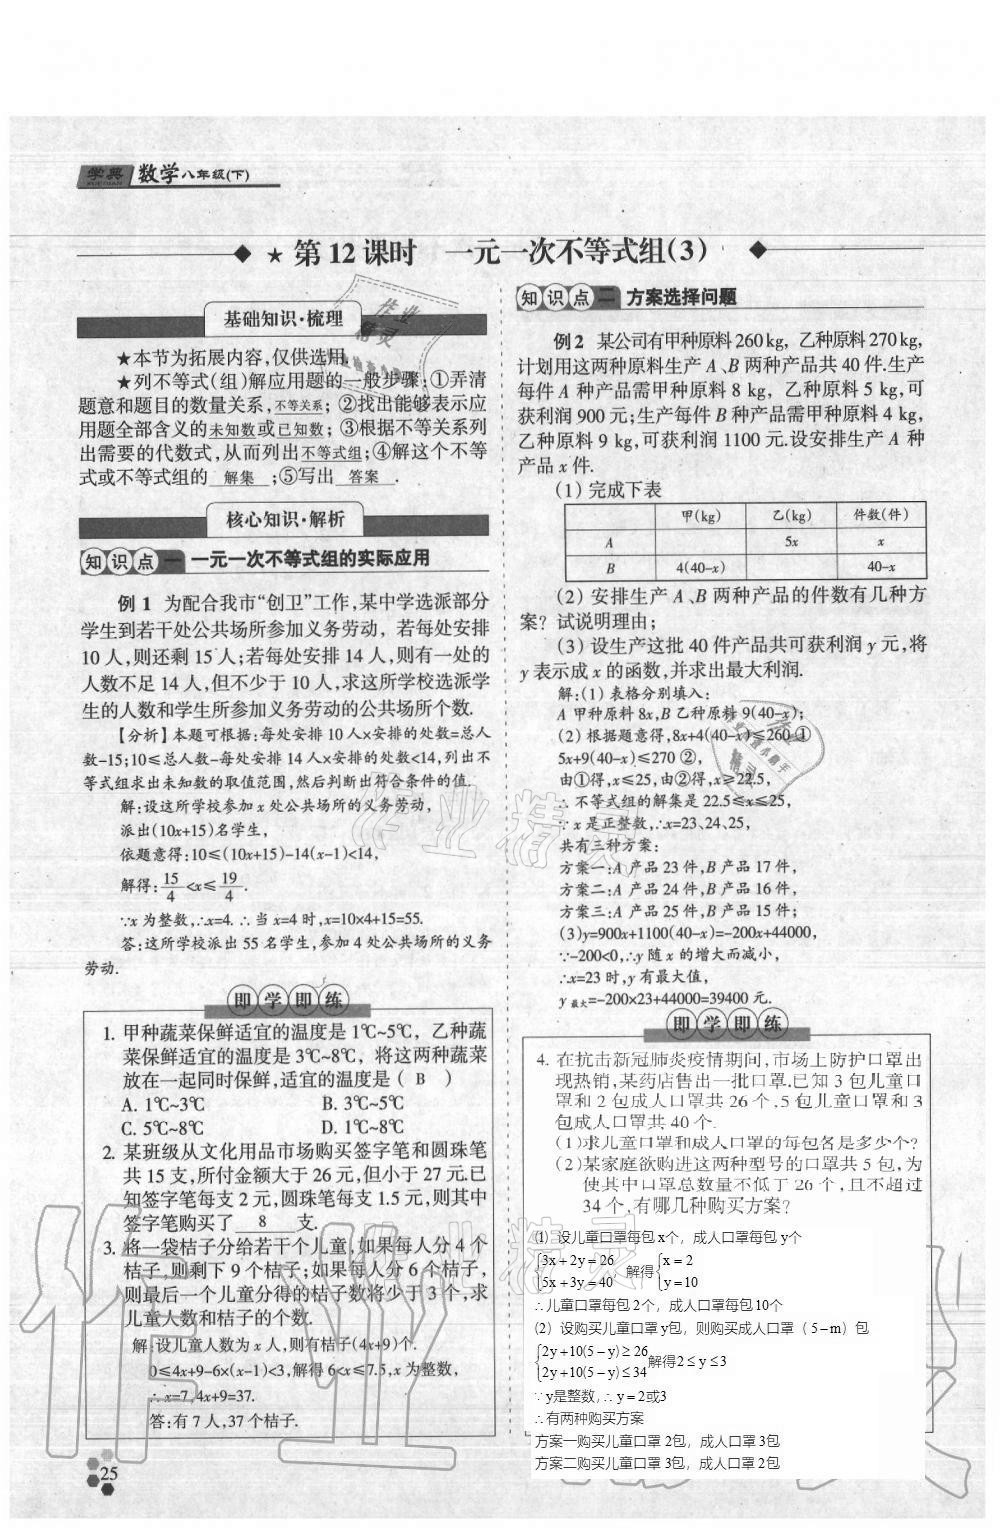 学典 数学八年级(下)
XUEDIAN
◆ ★ 第12课时 一元一次不等式组(3) ◆
基础知识·梳理
★本节为拓展内容,仅供选用.
★列不等式(组)解应用题的一般步骤:①弄清
题意和题目的数量关系,不等关系;②找出能够表示应
用题全部含义的未知数或已知数;③根据不等关系列
出需要的代数式,从而列出不等式组;④解这个不等
式或不等式组的 解集 ;⑤写出 答案 .
核心知识·解析
知识点一 一元一次不等式组的实际应用
例1 为配合我市“创卫”工作,某中学选派部分
学生到若干处公共场所参加义务劳动,若每处安排
10人,则还剩15人;若每处安排14人,则有一处的
人数不足14人,但不少于10人,求这所学校选派学
生的人数和学生所参加义务劳动的公共场所个数.
【分析】本题可根据:每处安排10人×安排的处数=总人
数-15;10≤总人数-每处安排14人×安排的处数<14,列出不
等式组求出未知数的取值范围,然后判断出符合条件的值.
解:设这所学校参加x处公共场所的义务劳动,
派出(10x+15)名学生,
依题意得:10≤(10x+15)-14(x-1)<14,
解得:15/4<x≤19/4.
∵x为整数,∴x=4.∴当x=4时,x=10×4+15=55.
答:这所学校派出55名学生,参加4处公共场所的义务
劳动.
即学即练
1. 甲种蔬菜保鲜适宜的温度是1℃~5℃,乙种蔬
菜保鲜适宜的温度是3℃~8℃,将这两种蔬菜
放在一起同时保鲜,适宜的温度是( B )
A. 1℃~3℃ B. 3℃~5℃
C. 5℃~8℃ D. 1℃~8℃
2. 某班级从文化用品市场购买签字笔和圆珠笔
共15支,所付金额大于26元,但小于27元.已
知签字笔每支2元,圆珠笔每支1.5元,则其中
签字笔购买了 8 支.
3. 将一袋桔子分给若干个儿童,如果每人分4个
桔子,则剩下9个桔子;如果每人分6个桔子,
则最后一个儿童分得的桔子数将少于3个,求
儿童人数和桔子的个数.
解:设儿童人数为x人,则有桔子(4x+9)个.
0≤4x+9-6×(x-1)<3,解得6<x≤7.5,x为整数,
∴x=7,4x+9=37.
答:有7人,37个桔子.
25
知识点二 方案选择问题
例2 某公司有甲种原料260kg,乙种原料270kg,
计划用这两种原料生产A、B两种产品共40件.生产
每件A种产品需甲种原料8 kg,乙种原料5 kg,可
获利润900元;生产每件B种产品需甲种原料4 kg,
乙种原料9 kg,可获利润1100元.设安排生产A种
产品x件.
(1)完成下表
甲(kg) 乙(kg) 件数(件)
A 5x x
B 4(40-x) 40-x
(2)安排生产A、B两种产品的件数有几种方
案?试说明理由;
(3)设生产这批40件产品共可获利润y元,将
y表示成x的函数,并求出最大利润.
解:(1)表格分别填入:
A甲种原料8x,B乙种原料9(40-x);
(2)根据题意得,8x+4(40-x)≤260①
5x+9(40-x)≤270②,
由①得,x≤25,由②得,x≥22.5,
∴不等式组的解集是22.5≤x≤25,
∵x是正整数,∴x=23、24、25,
共有三种方案:
方案一:A产品23件,B产品17件,
方案二:A产品24件,B产品16件,
方案三:A产品25件,B产品15件;
(3)y=900x+1100(40-x)=-200x+44000,
∵-200<0,∴y随x的增大而减小,
∴x=23时,y有最大值,
y最大=-200×23+44000=39400元.
即学即练
4. 在抗击新冠肺炎疫情期间,市场上防护口罩出
现热销,某药店售出一批口罩.已知3包儿童口
罩和2包成人口罩共26个,5包儿童口罩和3
包成人口罩共40个.
(1)求儿童口罩和成人口罩的每包各是多少个?
(2)某家庭欲购进这两种型号的口罩共5包,为
使其中口罩总数量不低于26个,且不超过
34个,有哪几种购买方案?
(1) 设儿童口罩每包x个,成人口罩每包y个
{3x+2y=26 5x+3y=40 解得{x=2 y=10
∴儿童口罩每包2个,成人口罩每包10个
(2) 设购买儿童口罩y包,则购买成人口罩(5-m)包
{2y+10(5-y)≥26 2y+10(5-y)≤34 解得2≤y≤3
∵y是整数,∴y=2或3
∴有两种购买方案
方案一购买儿童口罩2包,成人口罩3包
方案二购买儿童口罩3包,成人口罩2包
作业精灵